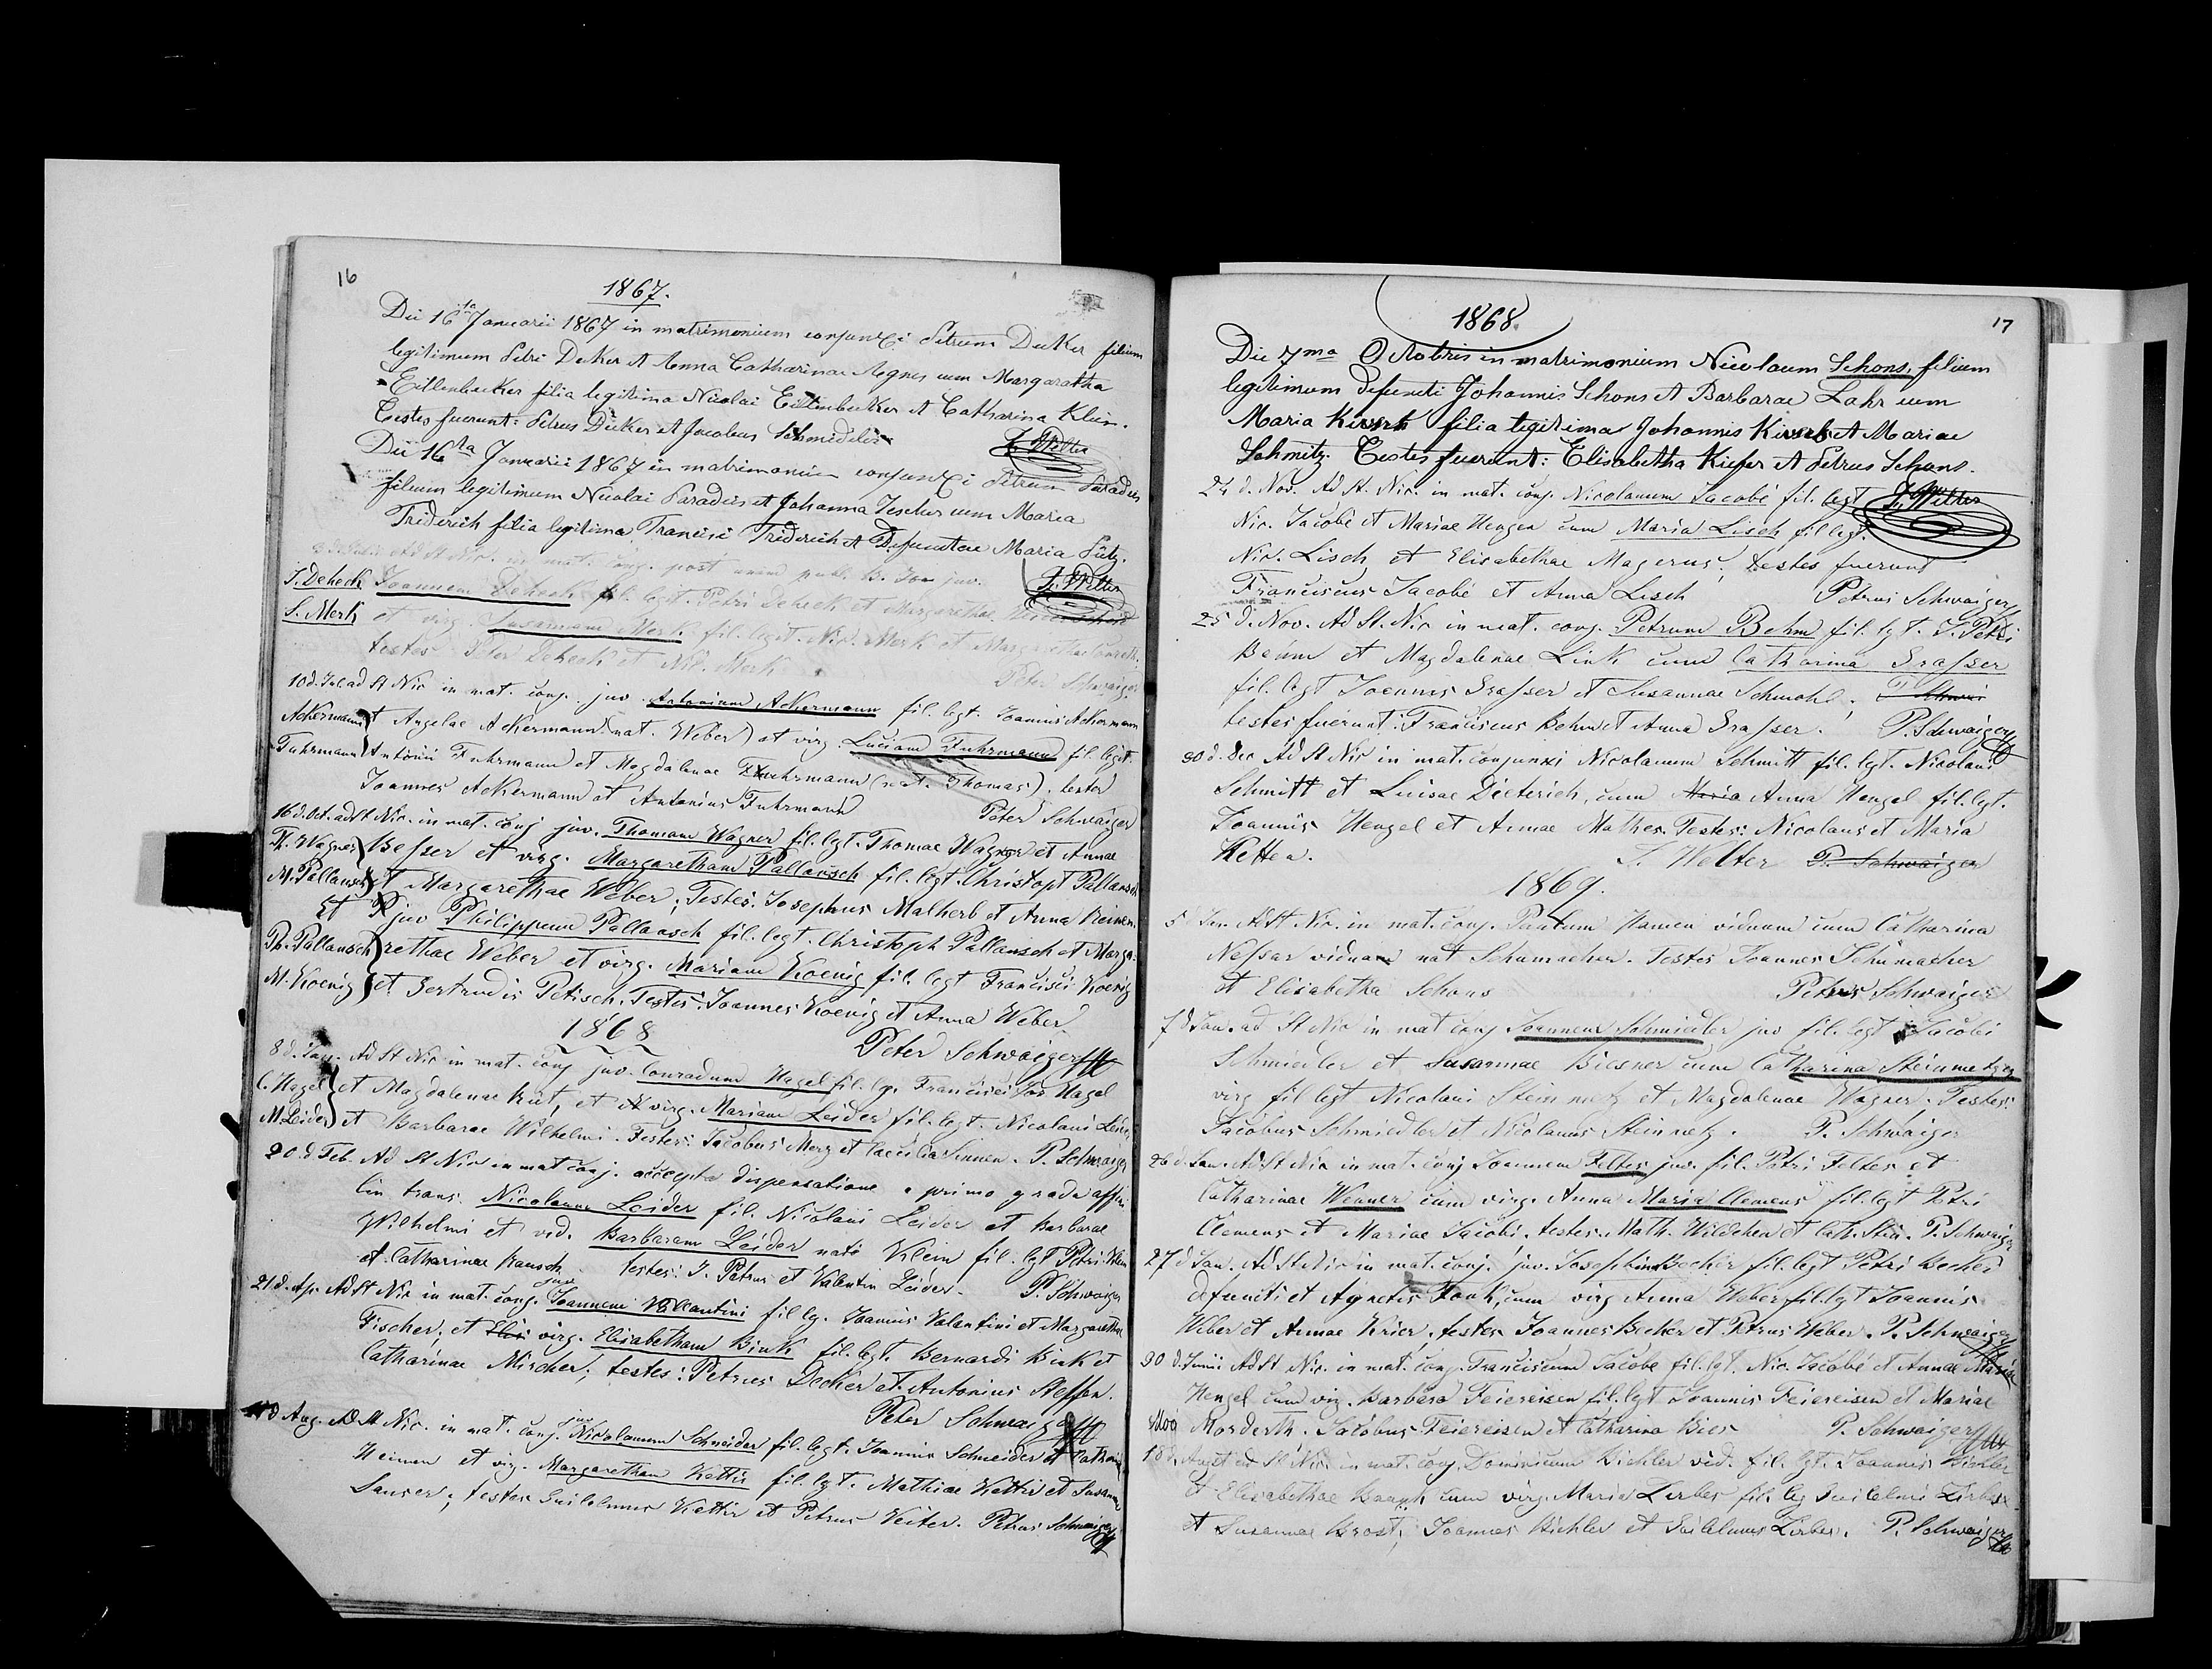 16
1867.
Die 16ta Januarii 1867 in matrimonium conjunxi Petrum Decker filium
legitimum Petri Deker et Anna Catharinae Agnes cum Margaratha
Eillenbecker filia legitima Nicolai Eillenbecker et Catharina Klein.
Testes fuerunt: Petrus Decker et Jacobus Schmideler
J. Welter
Die 16ta Januarii 1867 in matrimonium conjunxi Petrum Paradeis
filium legitimum Nicolai Paradeis et Johanna Tescher cum Maria
Friderich filia legitima Francisi Friderich et Defunctae Maria Pütz.
J. Welter
Ad St Nic. in mat. conj. post unam publ. juv.
J. Deheck Joannem Deheck fil. legt. Petri Deheck et Margarethae
S. Merk et virg. Susannam Merk fil. legit. Nic. Merk et
testes Peter Deheck et Nic. Merk
Peter Schwaiger
10 d. Jul ad St Nic in mat. conj. juv. Antonium Ackermann fil. legt. Joannis Ackermann
Ackermann et Angelae Ackermann (nat. Weber) et virg. Luciam Fuhrmann fil. legt.
Fuhrmann Antonii Fuhrmann et Magdalenae Fuhrmann (nat. Thomas). testes
Joannes Ackermann et Antonius Fuhrmann
Peter Schwaiger
16 d. Oct. ad St Nic. in mat. conj juv. Thomam Wagner fil. lgt. Thomae Wagner et Annae
Th. Wagner Besser et virg. Margaretham Pallansch fil. legt. Christoph Pallansch
M. Pallansch et Margarethae Weber; Testes: Josephus Malherb et Anna Reinen.
Et juv Philippum Pallansch fil. legt. Christoph Pallansch et Marga-
Ph. Pallansch rethae Weber et virg. Mariam Koenig fil. legt Francisci Koenig
M. Koenig et Gertrudis Petisch. Testes: Joannes Koenig et Anna Weber
1868
Peter Schwaiger
8 d. Jan. Ad St Nic in mat. conj juv. Conradum Nagel fil. lg. Francisci Jos Nagel
C. Nagel et Magdalenae Kut, et virg. Mariam Leider fil. legt. Nicolani Leider
M. Leider et Barbarae Wilhelmi. Testes: Jacobus Merz et Caecilia Sinnen. P. Schwaiger
20. d. Feb. Ad St Nic in mat conj. accepta dispensatione a primo gradu affin.
lin trans. Nicolaum Leider fil. Nicolaii Leider et Barbarae
Wilhelmi et vid. Barbaram Leider nate Klein fil. lgt Petri Klein
et Catharinae Rausch. testes: J. Petrus et Valentin Leider. P. Schwaiger
21. d. Ap. Ad St Nic in mat. conj. juv Joannem Valentini fil lg. Joannis Valentini et Margarethae
Fischer; et Elis virg. Elisabetham Bink fil. lgt. Bernardi Bink et
Catharinae Mircher; testes: Petrus Decker et Antonius Steffen.
Peter Schwaiger
d Aug. Ad St Nic. in mat. conj. juv Nicolaum Schneider fil. legt. Joannis Schneider et
Heinen et vig. Margaretham Kettir fil. lgt. Mathiae Kettir et Susannae
Sauser; testes Guilelmus Kettir et Petrus Veiter. Petrus Schwaiger
17
1868.
Die 7ma Octobris in matrimonium Nicolaum Schons, filium
legitimum Defuncti Johannis Schons et Barbarae Lahr cum
Maria Kirsch filia legitima Johannis Kirsch et Mariae
Schmitz. Testes fuerunt: Elisabetha Kiefer et Petrus Schons.
J. Welter
24 d. Nov. Ad St. Nic. in mat. conj. Nicolanum Jacobé fil. legt
Nic. Jacobé et Mariae Hengen cum Maria Lisch fil legt.
Nic. Lisch et Elisabethae Magerus; testes fuerunt
Franciscus Jacobé et Anna Lisch Petrus Schwaiger
25 d. Nov. Ad St. Nic in mat. conj. Petrum Behm fil. lgt. J. Petri
Behm et Magdalenae Link cum Catharina Grasser
fil. legt Joannis Grasser et Susannae Schmohl;
testes fuerunt: Franciscus Behm et Anna Grasser. P. Schwaiger
30 d. Dec Ad St Nic in mat. conjunxi Nicolanum Schmitt fil. lgt. Nicolani
Schmitt et Luisae Dieterich, cum Maria Anna Hengel fil. lgt.
Joannis Hengel et Annae Mathes. Testes: Nicolaus et Maria
Ketter. J. Welter P. Schwaiger
1869.
5 Jan. Ad St Nic. in mat. conj. Paulum Hamen viduum cum Catharina
Nessar viduam nat Schumacher. Testes Joannes Schumacher
et Elisabetha Schons Petrus Schwaiger
7 d Jan. ad St Nic in mat conj Joannem Schmiedler juv fil. legt Jacobi
Schmiedler et Susannae Biesner cum Catharina Steinmetzer
virg fil legt Nicolani Steinmetz et Magdalenae Wagner. Testes:
Jacobus Schmiedler et Nicolanus Steinmetz. P. Schwaiger
26 d. Jan. Ad St Nic in mat. conj Joannem Feltes juv. fil. Petri Feltes et
Catharinae Wenner cum virg. Anna Maria Clemens fil. legt Petri
Clemens et Mariae Jacobi. testes. Math. Wildchen et Cath. Stin. P. Schwaiger
27 d Jan. Ad St Nic in mat. conj. juv. Josephum Becher fil. legt Petri Becher
defuncti et Agnetis Fonk, cum virg Anna Weber fil. lgt Joannis
Weber et Annae Krier. testes Joannes Becker et Petrus Weber. P. Schwaiger
30 d. Junii Ad St Nic. in mat. conj. Franciscum Jacobe fil. lgt. Nic. Jacobé et Annae Mariae
Hengel cum vig. Barbara Feiereisen fil. lgt Joannis Feiereisen et Mariae
Morderth. Jacobus Feiereisen et Catharina Bies P. Schwaiger
18 d. Augst ad St Nic in mat. conj. Dominicum Bichler vid. fil. lgt. Joannis Bichler
et Elisabethae Baack cum virg. Maria Zerbes fil. leg Guilelmi Zerbes
et Susannae Brost; Joannes Bichler et Guilelmus Zerbes. P. Schwaiger